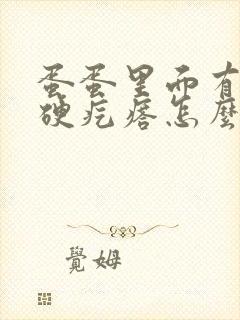 蛋蛋里面有
硬疙瘩怎麼
覺姆